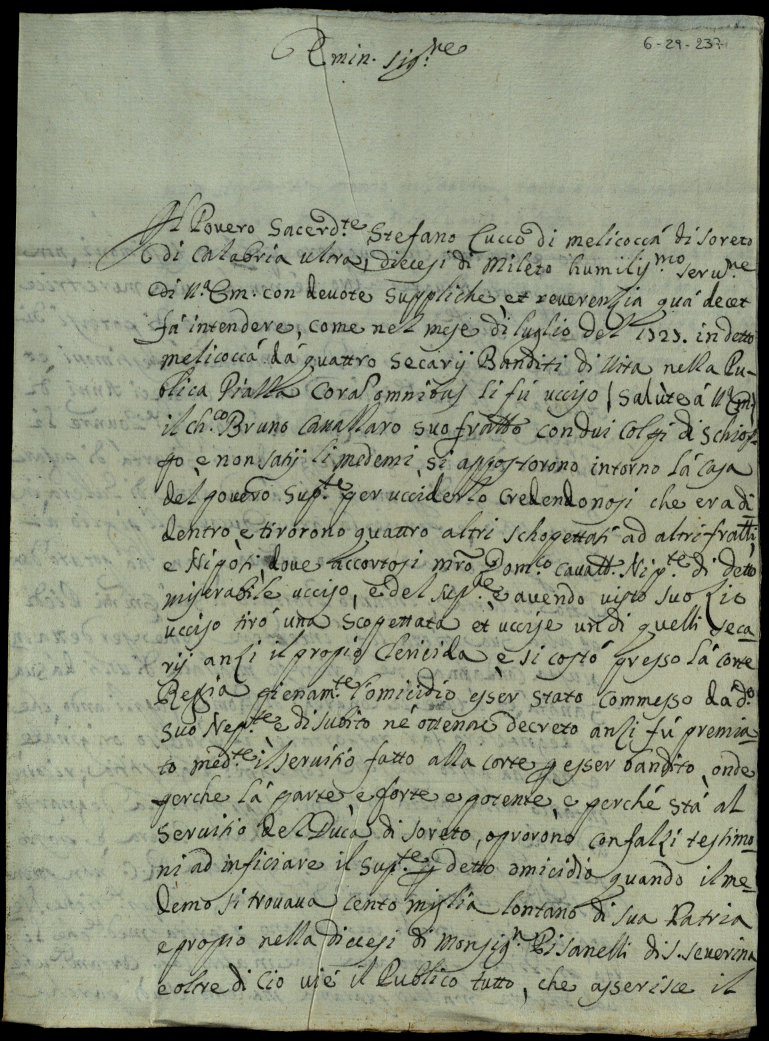 6-29-237
Emin. Sig.re
Il Povero Sacerd.te Stefano Cucco di melicoccá di Soreto
di Calabria ultra, diecesi di Mileto humilis.mo serv.re
di V.a Em. con devote suppliche et reverenzia quá decet
fá intendere, come nel mese di luglio del 1723. in detto
melicoccá dá quattro secarij Banditi di Vita nella Pu-
blica Piazza coram omnibus li fú ucciso (salute á V.a Em.)
il ch.co Bruno Cavallaro suo fratto con dui colpi di schiop-
po e non satij li medemi, si appostorono intorno lá casa
del povero Sup.te per ucciderlo credendonosi che era di
dentro, e tirorono quattro altri schopettati ad altri fratti
e Nipoti dove accortosi mro Dom.co Cavall. Nip.te di detto
miserabile ucciso, e del sup.te e avendo visto suo zio
ucciso tiró una scopettata et uccise un di quelli seca-
rij anzi il propio Clericida e si costó presso lá corte
Regia pienam.te l'omicidio esser stato commesso da d.o
suo Nep.te e di subito né ottenne decreto anzi fú premia-
to med.te il servitio fatto alla corte p esser bandito, onde
perche lá parte é forte e potente, e perché stá al
servitio del Ducá di Soreto, oprorono con falzi testimo-
ni ad inficiare il sup.te p detto omicidio quando il me-
demo si trovava cento miglia lontano di sua Patria
e propio nella Diecesi di Monsig.r Pisanelli di S. Severina
e oltre di ció vié il Publico tutto, che asserisce il